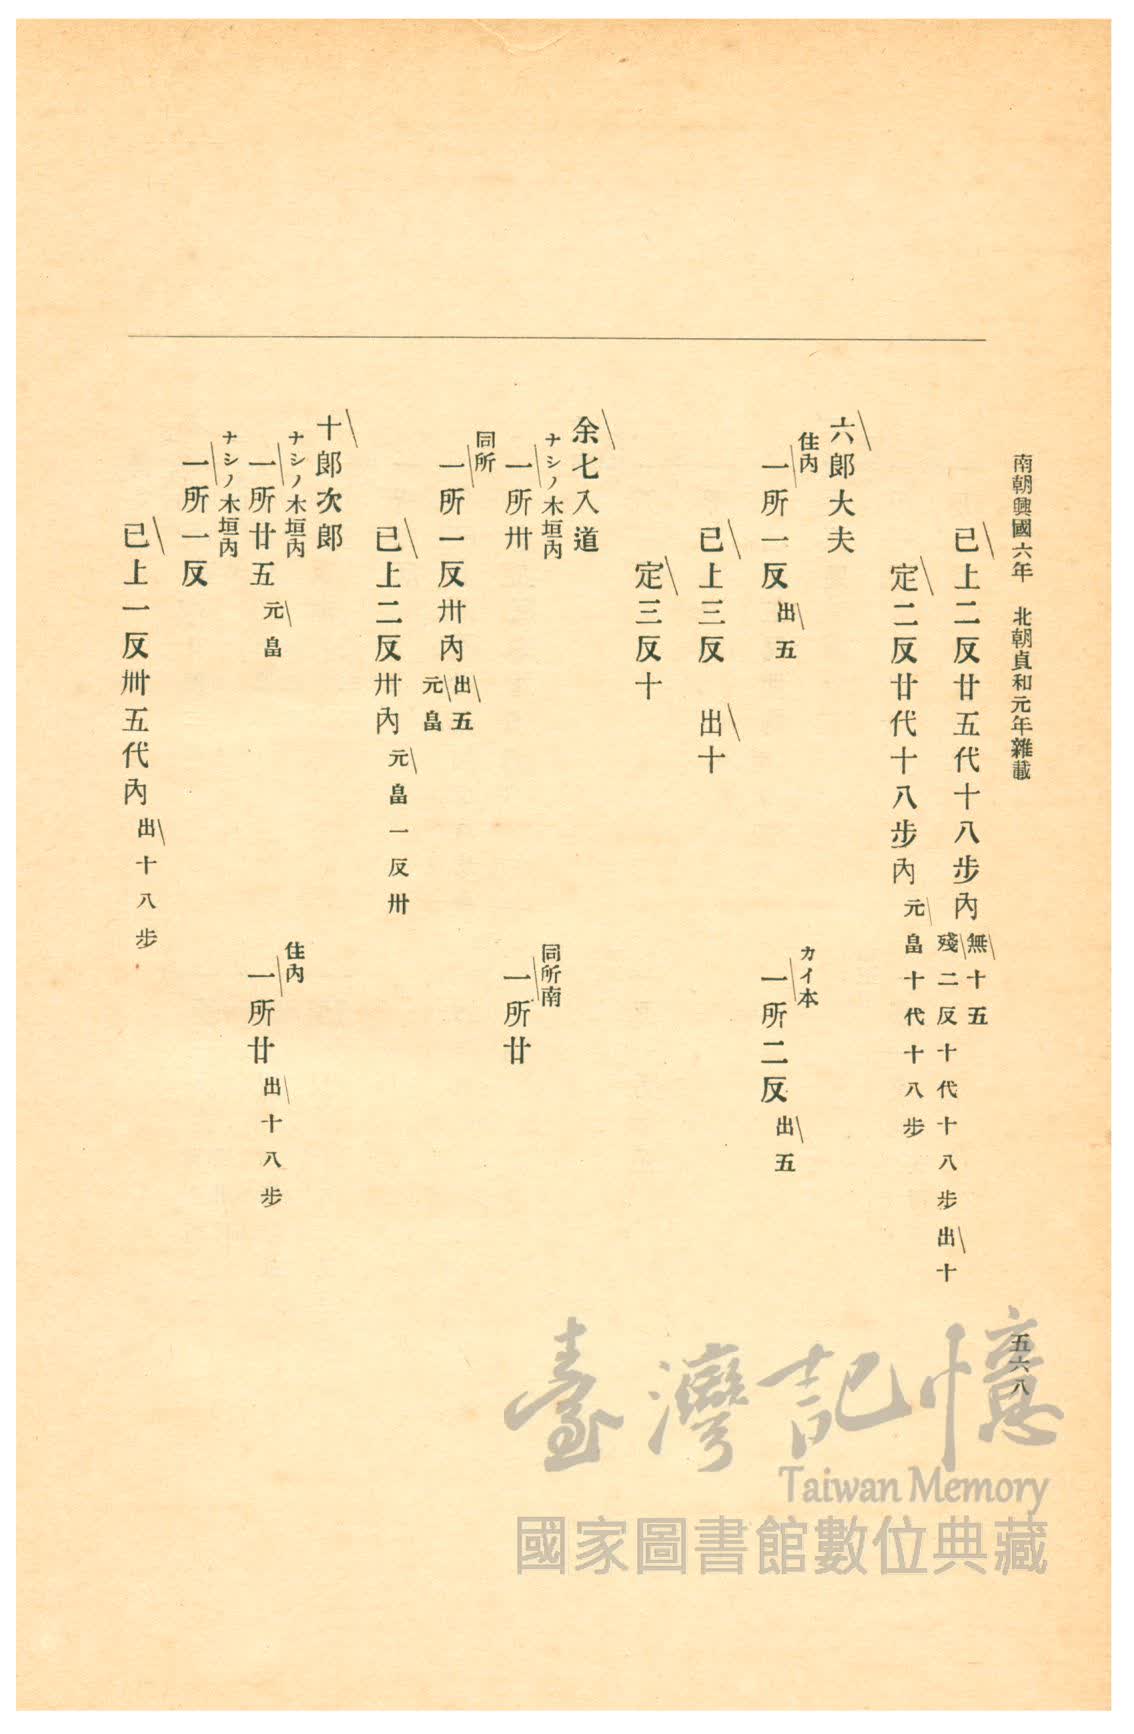 南朝興國六年 北朝貞和元年雜載
五六八
已上二反廿五代十八步內 無十五
殘二反十代十八步出十
定二反廿代十八步內 元畠十代十八步
六郎大夫
住內
一所一反 出五
カイ本
一所二反 出五
已上三反 出十
定三反十
余七入道
ナシノ木垣內
一所卅
同所南
一所廿
同所
一所一反卅內 出五
元畠
已上二反卅內 元畠一反卅
十郎次郎
ナシノ木垣內
一所廿五 元畠
住內
一所廿 出十八步
ナシノ木垣內
一所一反
已上一反卌五代內 出十八步
臺灣記憶
Taiwan Memory
國家圖書館數位典藏